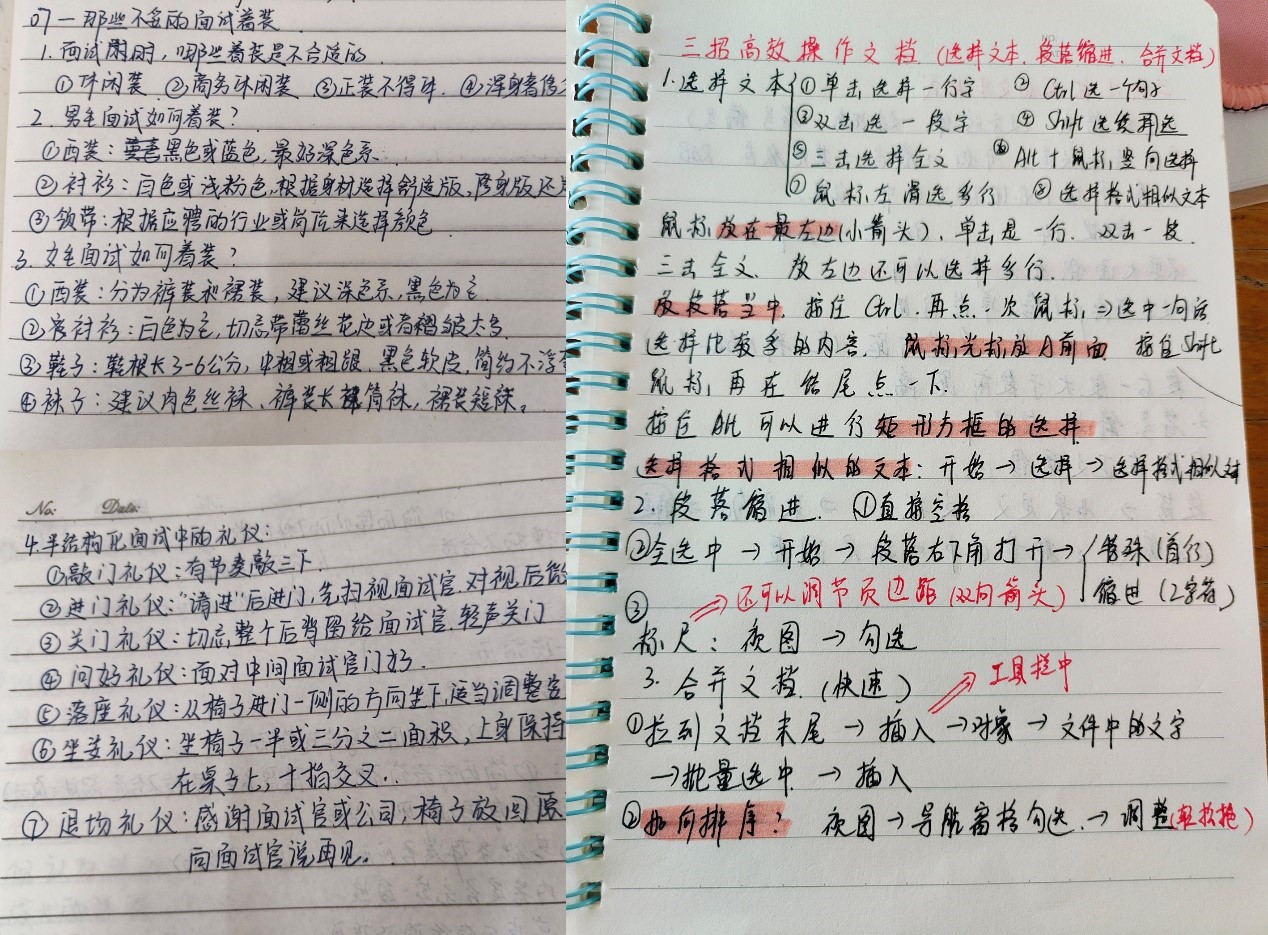 07一那些不妥的面试着装
1.面试时,哪些着装是不合适的
①休闲装 ②商务休闲装 ③正装不得体 ④浑身奢侈
2.男生面试如何着装?
①西装:黑色或蓝色,最好深色系.
②衬衫:白色或浅粉色,根据身材选择舒适版,修身版还是
③领带:根据应聘的行业或岗位来选择颜色
3.女生面试如何着装?
①西装:分为裤装和裙装,建议深色系,黑色为主
②衬衫:白色为主,切忌带蕾丝花边或者褶皱太多
③鞋子:鞋根长3-6公分,中粗或粗跟.黑色软皮,简约不浮夸
④袜子:建议肉色丝袜、裤装长筒袜,裙装短袜。
No: Date:
4.半结构化面试中的礼仪:
①敲门礼仪:有节奏敲三下.
②进门礼仪:"请进"后进门,先扫视面试官.对视后
③关门礼仪:切忌整个后背留给面试官.轻声关门
④问好礼仪:面对中间面试官门好.
⑤落座礼仪:从椅子进门一侧的方向坐下,适当调整
⑥坐姿礼仪:坐椅子一半或三分之二面积,上身保持
在桌子上,十指交叉..
⑦退场礼仪:感谢面试官或公司,椅子放回原
向面试官说再见.
三招高效操作文档(选择文本.段落缩进.合并文档)
1.选择文本 ①单击选择一行字 ② Ctrl选一个句子
③双击选一段字 ④ Shift 连续挑选
⑤三击选择全文 ⑥ Alt+鼠标竖向选择
⑦鼠标左滑选多行 ⑧选择格式相似文本
鼠标放在最左边(小箭头).单击是一行.双击一段.
三击全文、放左边还可以选择多行.
放段落当中.按住Ctrl.再点一次鼠标⇒选中一句话
选择比较多的内容.鼠标光标放入前面 按住Shift
鼠标,再在结尾点一下.
按住Alt可以进行矩形方框的选择
选择格式相似的文本:开始→选择→选择格式相似文本
2.段落缩进. ①直接空格
②全选中→开始→段落右下角打开→ 特殊(首行)
缩进(2字符)
③ ⇒还可以调节页边距(双向箭头)
标尺:视图→勾选
3.合并文档.(快速) ⇒工具栏中
①拉到文档末尾→插入→对象→文件中的文字
→批量选中→插入
②如何排序? 视图→导航窗格勾选.→调整(轻松拖)